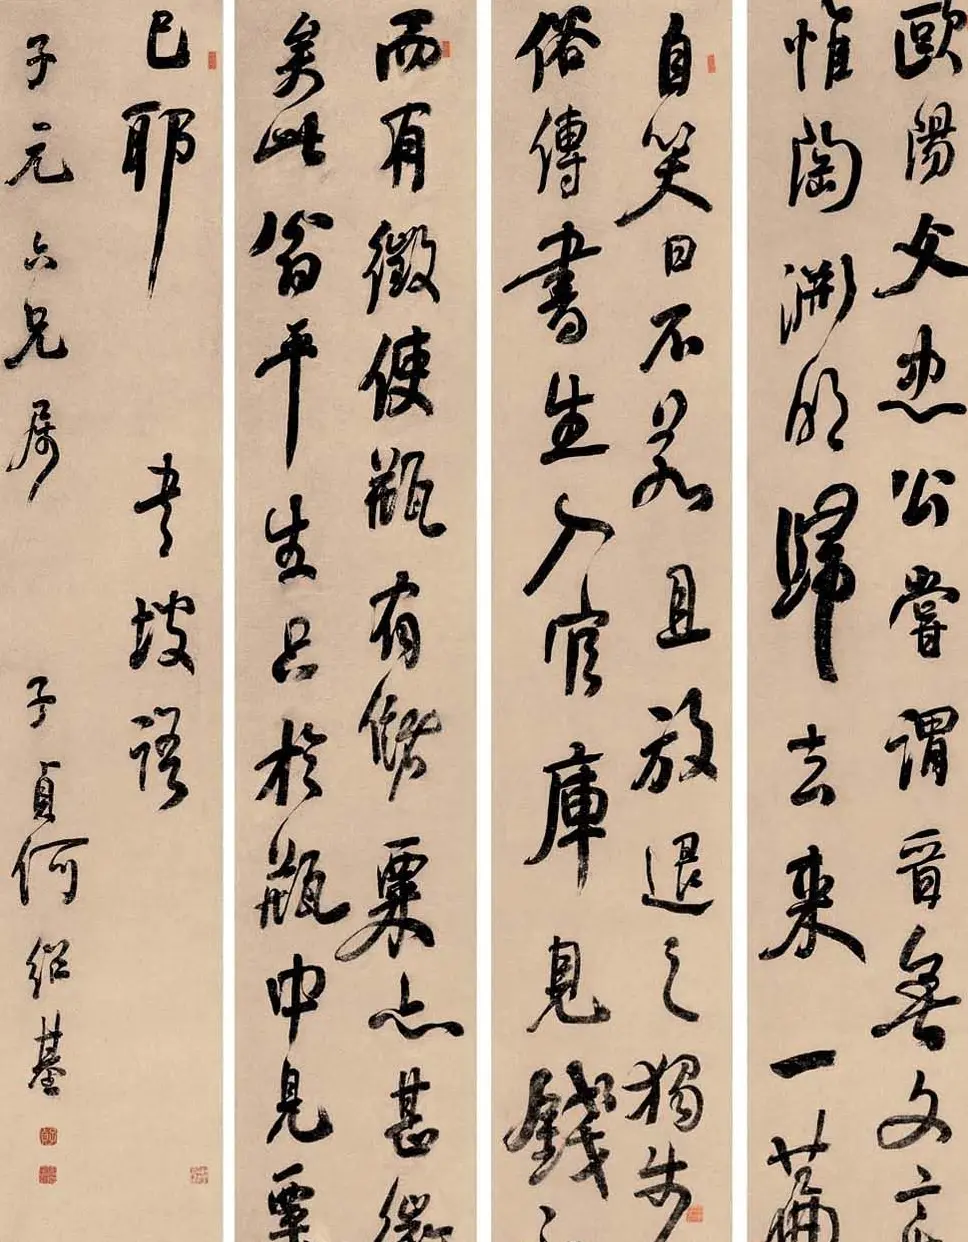 歐陽文忠公嘗謂晉無文
惟陶淵明歸去來一篇
自笑曰不若且放退之獨步
俗傳書生入官庫見錢
而有徵使瓶有儲粟亦甚微
矣此翁平生只於瓶中見粟
已耶 東坡語
子元六兄屬 子貞何紹基